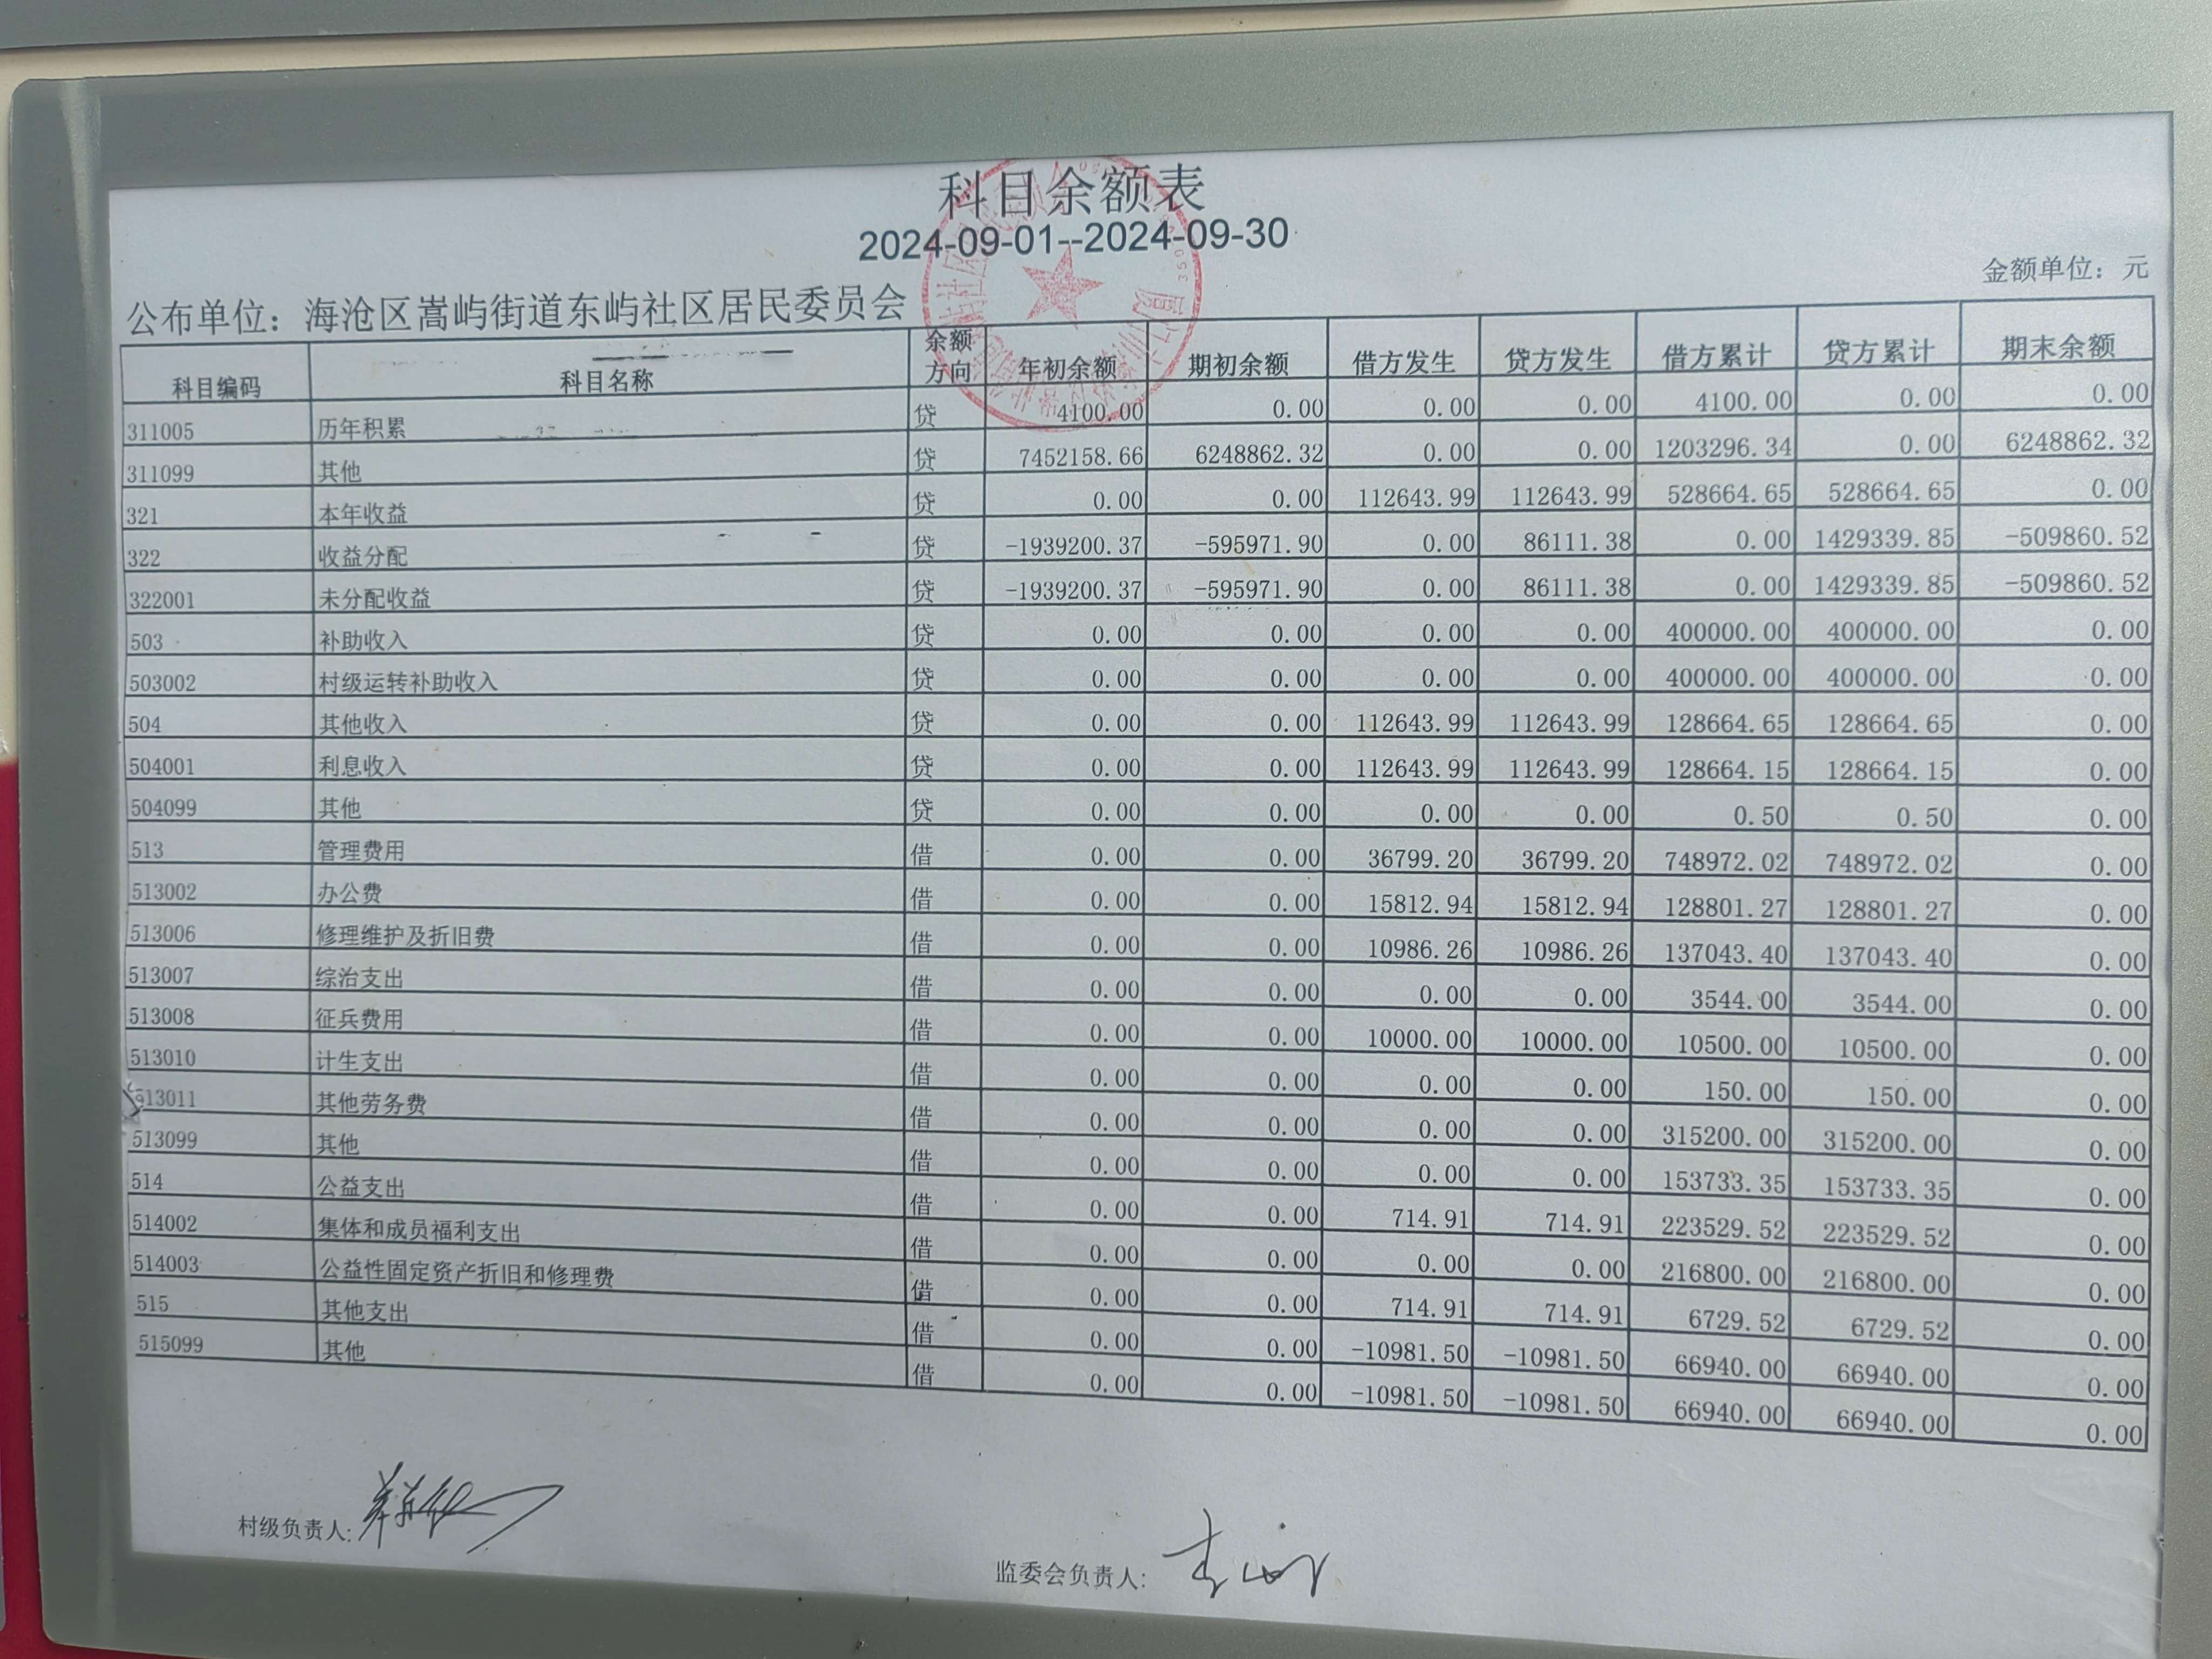 科目余额表
2024-09-01--2024-09-30
金额单位：元
公布单位：海沧区嵩屿街道东屿社区居民委员会
科目编码 科目名称 余额方向 年初余额 期初余额 借方发生 贷方发生 借方累计 贷方累计 期末余额
311005 历年积累 贷 4100.00 0.00 0.00 0.00 4100.00 0.00 0.00
311099 其他 贷 7452158.66 6248862.32 0.00 0.00 1203296.34 0.00 6248862.32
321 本年收益 贷 0.00 0.00 112643.99 112643.99 528664.65 528664.65 0.00
322 收益分配 贷 -1939200.37 -595971.90 0.00 86111.38 0.00 1429339.85 -509860.52
322001 未分配收益 贷 -1939200.37 -595971.90 0.00 86111.38 0.00 1429339.85 -509860.52
503 补助收入 贷 0.00 0.00 0.00 0.00 400000.00 400000.00 0.00
503002 村级运转补助收入 贷 0.00 0.00 0.00 0.00 400000.00 400000.00 0.00
504 其他收入 贷 0.00 0.00 112643.99 112643.99 128664.65 128664.65 0.00
504001 利息收入 贷 0.00 0.00 112643.99 112643.99 128664.15 128664.15 0.00
504099 其他 贷 0.00 0.00 0.00 0.00 0.50 0.50 0.00
513 管理费用 借 0.00 0.00 36799.20 36799.20 748972.02 748972.02 0.00
513002 办公费 借 0.00 0.00 15812.94 15812.94 128801.27 128801.27 0.00
513006 修理维护及折旧费 借 0.00 0.00 10986.26 10986.26 137043.40 137043.40 0.00
513007 综治支出 借 0.00 0.00 0.00 0.00 3544.00 3544.00 0.00
513008 征兵费用 借 0.00 0.00 10000.00 10000.00 10500.00 10500.00 0.00
513010 计生支出 借 0.00 0.00 0.00 0.00 150.00 150.00 0.00
513011 其他劳务费 借 0.00 0.00 0.00 0.00 315200.00 315200.00 0.00
513099 其他 借 0.00 0.00 0.00 0.00 153733.35 153733.35 0.00
514 公益支出 借 0.00 0.00 714.91 714.91 223529.52 223529.52 0.00
514002 集体和成员福利支出 借 0.00 0.00 0.00 0.00 216800.00 216800.00 0.00
514003 公益性固定资产折旧和修理费 借 0.00 0.00 714.91 714.91 6729.52 6729.52 0.00
515 其他支出 借 0.00 0.00 -10981.50 -10981.50 66940.00 66940.00 0.00
515099 其他 借 0.00 0.00 -10981.50 -10981.50 66940.00 66940.00 0.00
村级负责人:
监委会负责人: